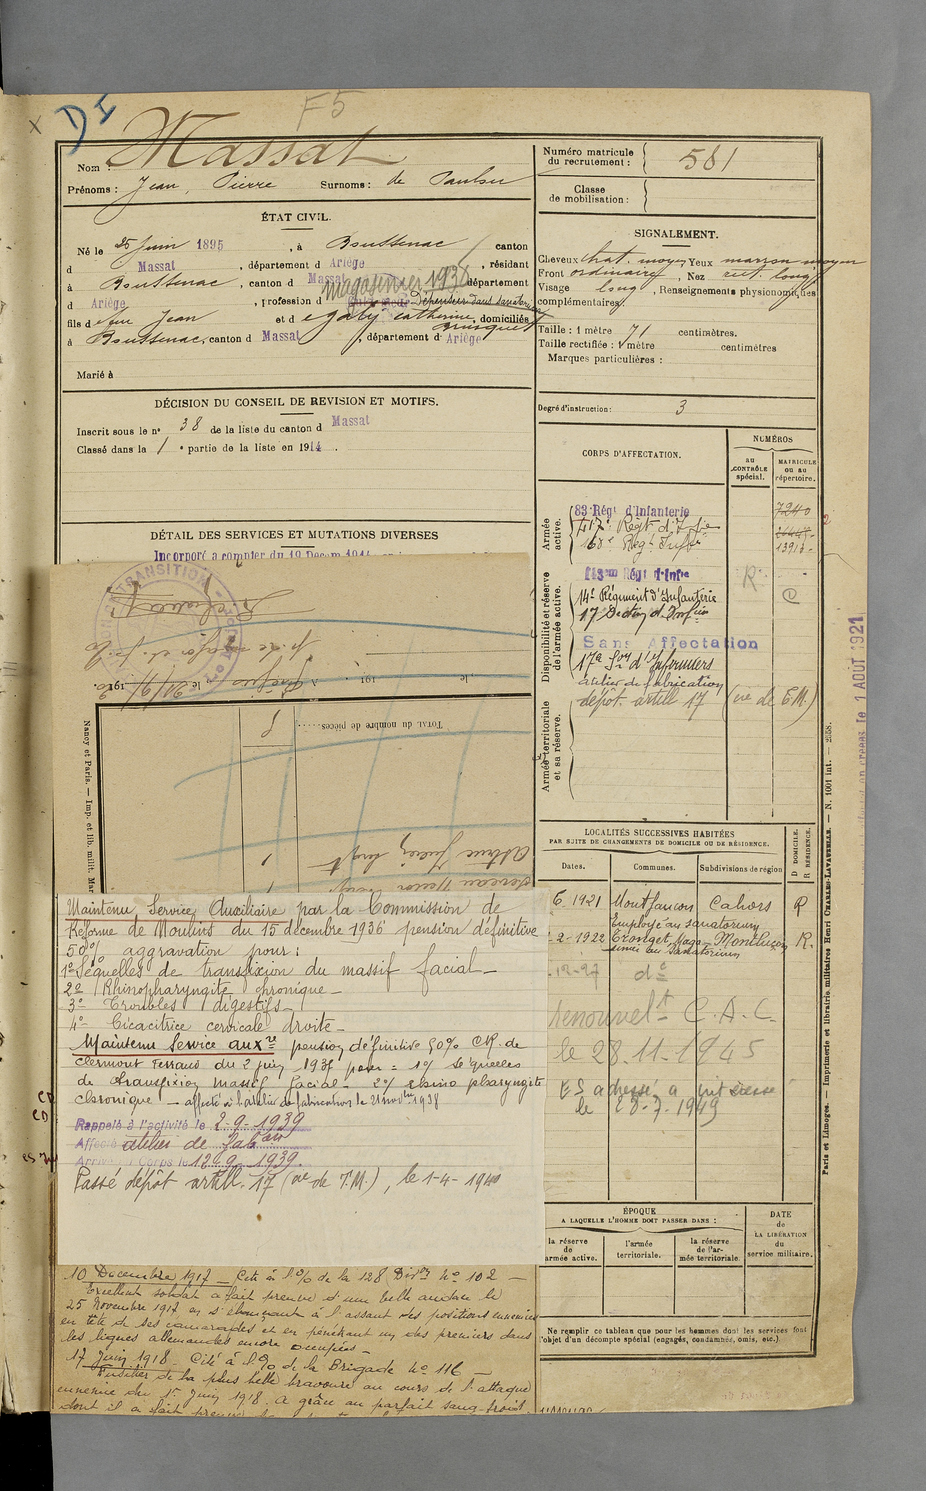 DI
F5
X
Nom : Massat
Prénoms : Jean, Pierre Surnoms : de Paulou
ÉTAT CIVIL.
Né le 25 Juin 1895, à Boussenac canton
d Massat, département d Ariège, résidant
à Boussenac, canton d Massat département
magasinier 1936
d Ariège, profession d Dépensier dans sanatorium
fils de Jean et d Egaly Catherine, domiciliés
à Boussenac, canton d Massat, département d Ariège
Marié à
DÉCISION DU CONSEIL DE REVISION ET MOTIFS.
Inscrit sous le n° 38 de la liste du canton d Massat
Classé dans la 1e partie de la liste en 1914.
DÉTAIL DES SERVICES ET MUTATIONS DIVERSES
Incorporé à compter du 19 Décem. 1914
TOTAL du nombre de pièces
Nancy et Paris. — Imp. et lib. milit.
Maintenu Service Auxiliaire par la Commission de
Réforme de Moulins du 15 décembre 1936 pension définitive
50% aggravation pour :
1° Séquelles de transfixion du massif facial —
2° Rhinopharyngite chronique —
3° Troubles digestifs —
4° Cicacitrice cervicale droite —
Maintenu Service auxre pension définitive 50% CR. de
Clermont Ferrand du 2 juin 1937 pour = 1°/ Séquelles
de transfixion massif facial — 2°/ rhino pharyngite
chronique — affecté à l'atelier de fabrication le 21 novbre 1938
Rappelé à l'activité le 2-9-1939
Affecté atelier de fabon
Arrivé au Corps le 12-9-1939.
Passé dépôt artill. 17 (ve de T.M.), le 1-4-1940
10 Décembre 1917 — Cité à l'O/ de la 128 Divon N° 102 —
Excellent soldat a fait preuve d'une belle audace le
25 Novembre 1917 en s'élançant à l'assaut des positions ennemies
en tête de ses camarades et en pénétrant un des premiers dans
les lignes allemandes encore occupées —
17 Juin 1918 — Cité à l'O/ de la Brigade N° 116 —
Fusilier de la plus belle bravoure au cours de l'attaque
ennemie du 1er Juin 1918. a grâce au parfait sang-froid
dont il a fait preuve
Numéro matricule du recrutement : 581
Classe de mobilisation :
SIGNALEMENT.
Cheveux chat. moyen Yeux marron moyen
Front ordinaire, Nez rect. long
Visage long, Renseignements physionomiques
complémentaires
Taille : 1 mètre 71 centimètres.
Taille rectifiée : 1 mètre centimètres
Marques particulières :
Degré d'instruction : 3
CORPS D'AFFECTATION.
NUMÉROS
au CONTRÔLE spécial.
MATRICULE ou au répertoire.
Armée active.
83 Régt d'Infanterie 7240
417e Régt d'Infie
168e Régt Infie 13913
Disponibilité et réserve de l'armée active.
143me Régt d'Infie
14e Régiment d'Infanterie
17e Section d'Infiers
Sans Affectation
17e Son d'Infirmiers
atelier de fabrication
dépôt. artill 17 (ve de T.M.)
Armée territoriale et sa réserve.
LOCALITÉS SUCCESSIVES HABITÉES
PAR SUITE DE CHANGEMENTS DE DOMICILE OU DE RÉSIDENCE.
Dates. Communes. Subdivisions de région
D DOMICILE. R RÉSIDENCE.
6 1921 Montfaucon Cahors R
Employé au Sanatorium
2-1922 Tronget, Maga- Montluçon R.
sinier au Sanatorium
12-27 do
Renouvelt C.A.C
le 28.11-1945
ES adressé a intéressé
le 28-7-1949
ÉPOQUE
A LAQUELLE L'HOMME DOIT PASSER DANS :
la réserve de armée active.
l'armée territoriale.
la réserve de l'armée territoriale.
DATE de LA LIBÉRATION du service militaire.
Ne remplir ce tableau que pour les hommes dont les services font
l'objet d'un décompte spécial (engagés, condamnés, omis, etc.).
Paris et Limoges. — Imprimerie et librairie militaires Henri CHARLES-LAVAUZELLE. — N. 1001 int. — 2558.
le 1 AOUT 1921